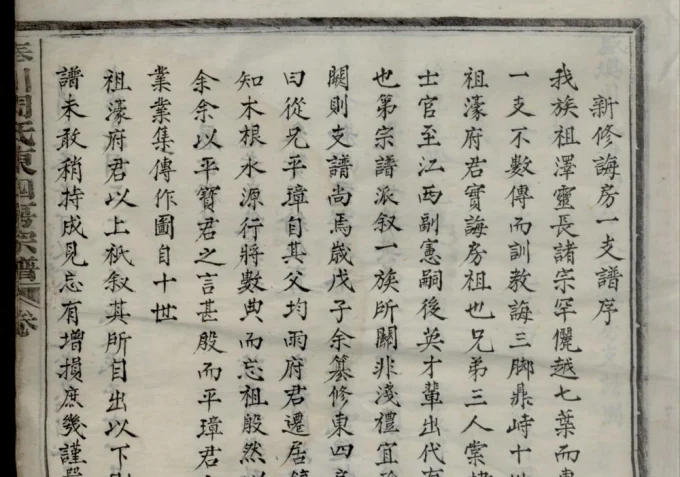 新修誨房一支譜序
我族祖澤靈長諸宗罕儷越七葉而東
一支不數傳而訓教誨三脚鼎峙十世
祖濠府君實誨房祖也兄弟三人棠棣
士官至江西副憲嗣後英才輩出代有
也第宗譜派叙一族所關非淺禮宜
闕則支譜尚焉歲戊子余纂修東四房
曰從兄平璋自其父均雨府君遷居
知木根水源行將數典而忘祖殷然以
余余以平寶君之言甚殷而平璋君
業業集傳作圖自十世
祖濠府君以上祇叙其所自出以下則
譜未敢稍持成見忘有增損庶幾謹嚴
川周氏東四房宗譜 卷